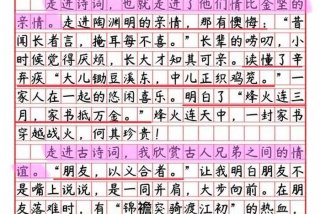 走进诗词，也就走进了他们情比金坚的
亲情。走进陶渊明的亲情，那有懊悔：“昔
闻长者言，掩耳每不喜。”长辈的唠叨，小
时候觉得厌烦，长大才知其可亲。读懂了辛
弃疾“大儿锄豆溪东，中儿正织鸡笼。”一
家人在一起的悠闲喜乐。明白了“烽火连三
月，家书抵万金。”烽火连天中，一封家书
穿越战火，何其珍贵！
走进古诗词，我欣赏古人兄弟之间的情
谊。“朋友，以义合者。”让我明白朋友不
是嘴上说说，是一同并肩，大步向前。在朋
友落难时，有“锦襜突骑渡江初”的热血，